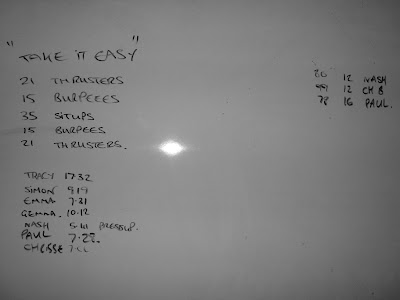 "TAKE IT EASY"
21 THRUSTERS
15 BURPEEES
35 SITUPS
15 BURPEES
21 THRUSTERS.
TRACY 17:32
SIMON 9:19
EMMA 7:31
GEMMA. 10:12
NASH PRESSUP.
PAUL 7:28.
CHEESE
12 NASH
99 12 CH B
78 16 PAUL.